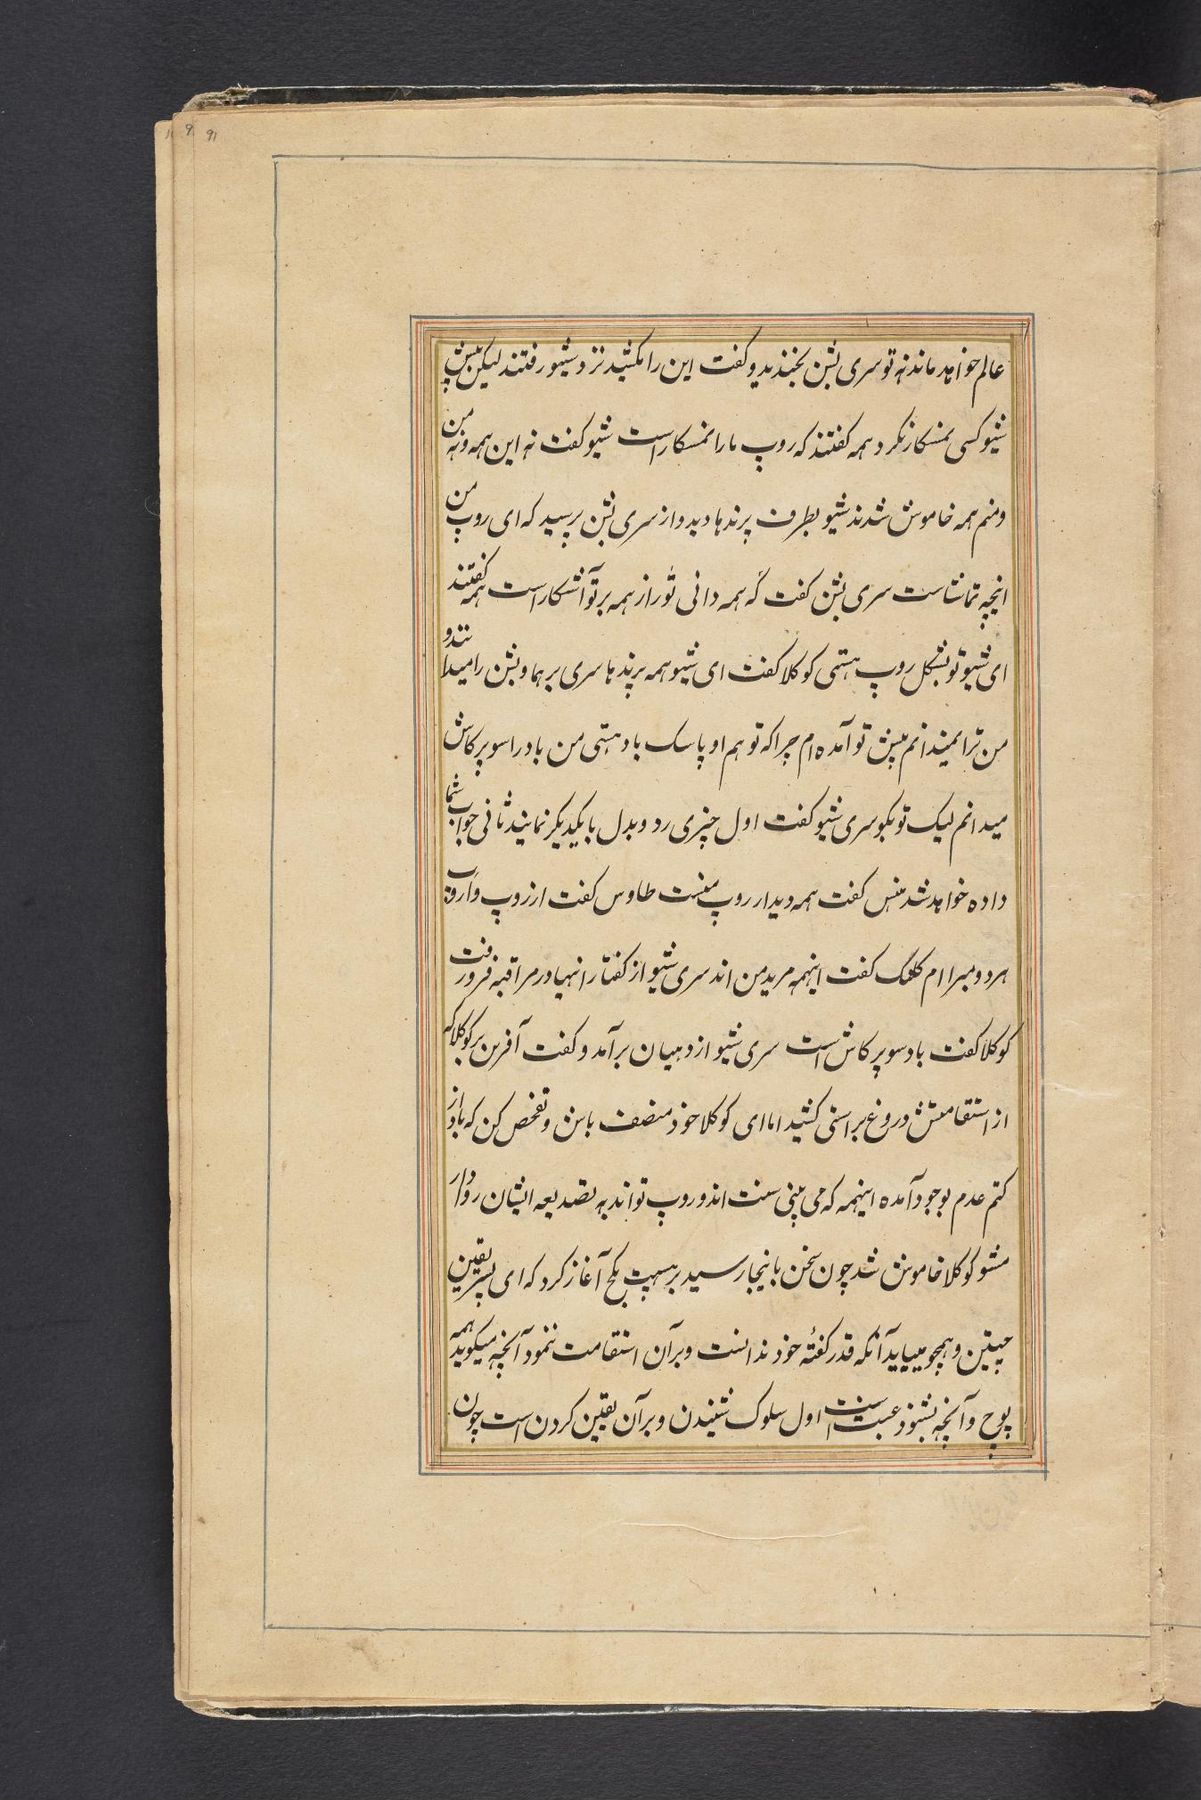 91
عالم خواهد ماند نه تو سری بشن بخندید و گفت این را بکشید نزد شیو رفتند لیکن پیش
شیو کسی نمسکار نکرد همه گفتند که روپ ما را نمسکار است شیو گفت نه این همه و نه من
و منم همه خاموش شدند شیو بطرف پرندها دید و از سری بشن پرسید که ای روپ من
اینچه تماشاست سری بشن گفت که همه دانی تو راز همه بر تو آشکار است همه گفتند
ای شیو تو بشکل روپ هستی کوکلا گفت ای شیو همه پرندها سری برهما و بشن را میدانند و
من ترا نمیدانم پیش تو آمده ام چرا که تو هم اوپاسک باد هستی من باد را سوپرکاش
میدانم لیک تو بگو سری شیو گفت اول چیزی رد و بدل با یکدیگر نمایند ثانی جواب شما
داده خواهد شد هنس گفت همه دیدار روپ منست طاوس گفت از روپ و اروپ
هر دو مبرا ام کلنک گفت اینهمه مرید من اند سری شیو از گفتار انها در مراقبه فرو رفت
کوکلا گفت باد سوپرکاش است سری شیو از دهیان برآمد و گفت آفرین بر کوکلا که
از استقامتش دروغ براستی کشید اما ای کوکلا خود منصف باش و تفحص کن که باد از
کتم عدم بوجود آمده اینهمه که می بینی ست اند و روپ تو اند به تصدیعه ایشان روادار
مشو کوکلا خاموش شد چون سخن باینجا رسید برهسپت بکچ آغاز کرد که ای پسر یقین
چنین و همچو میباید آنکه قدر گفته خود ندانست و برآن استقامت ننمود آنچه میگوید همه
پوچ و آنچه بشنود عبث است اول سلوک شنیدن و برآن یقین کردن است چون